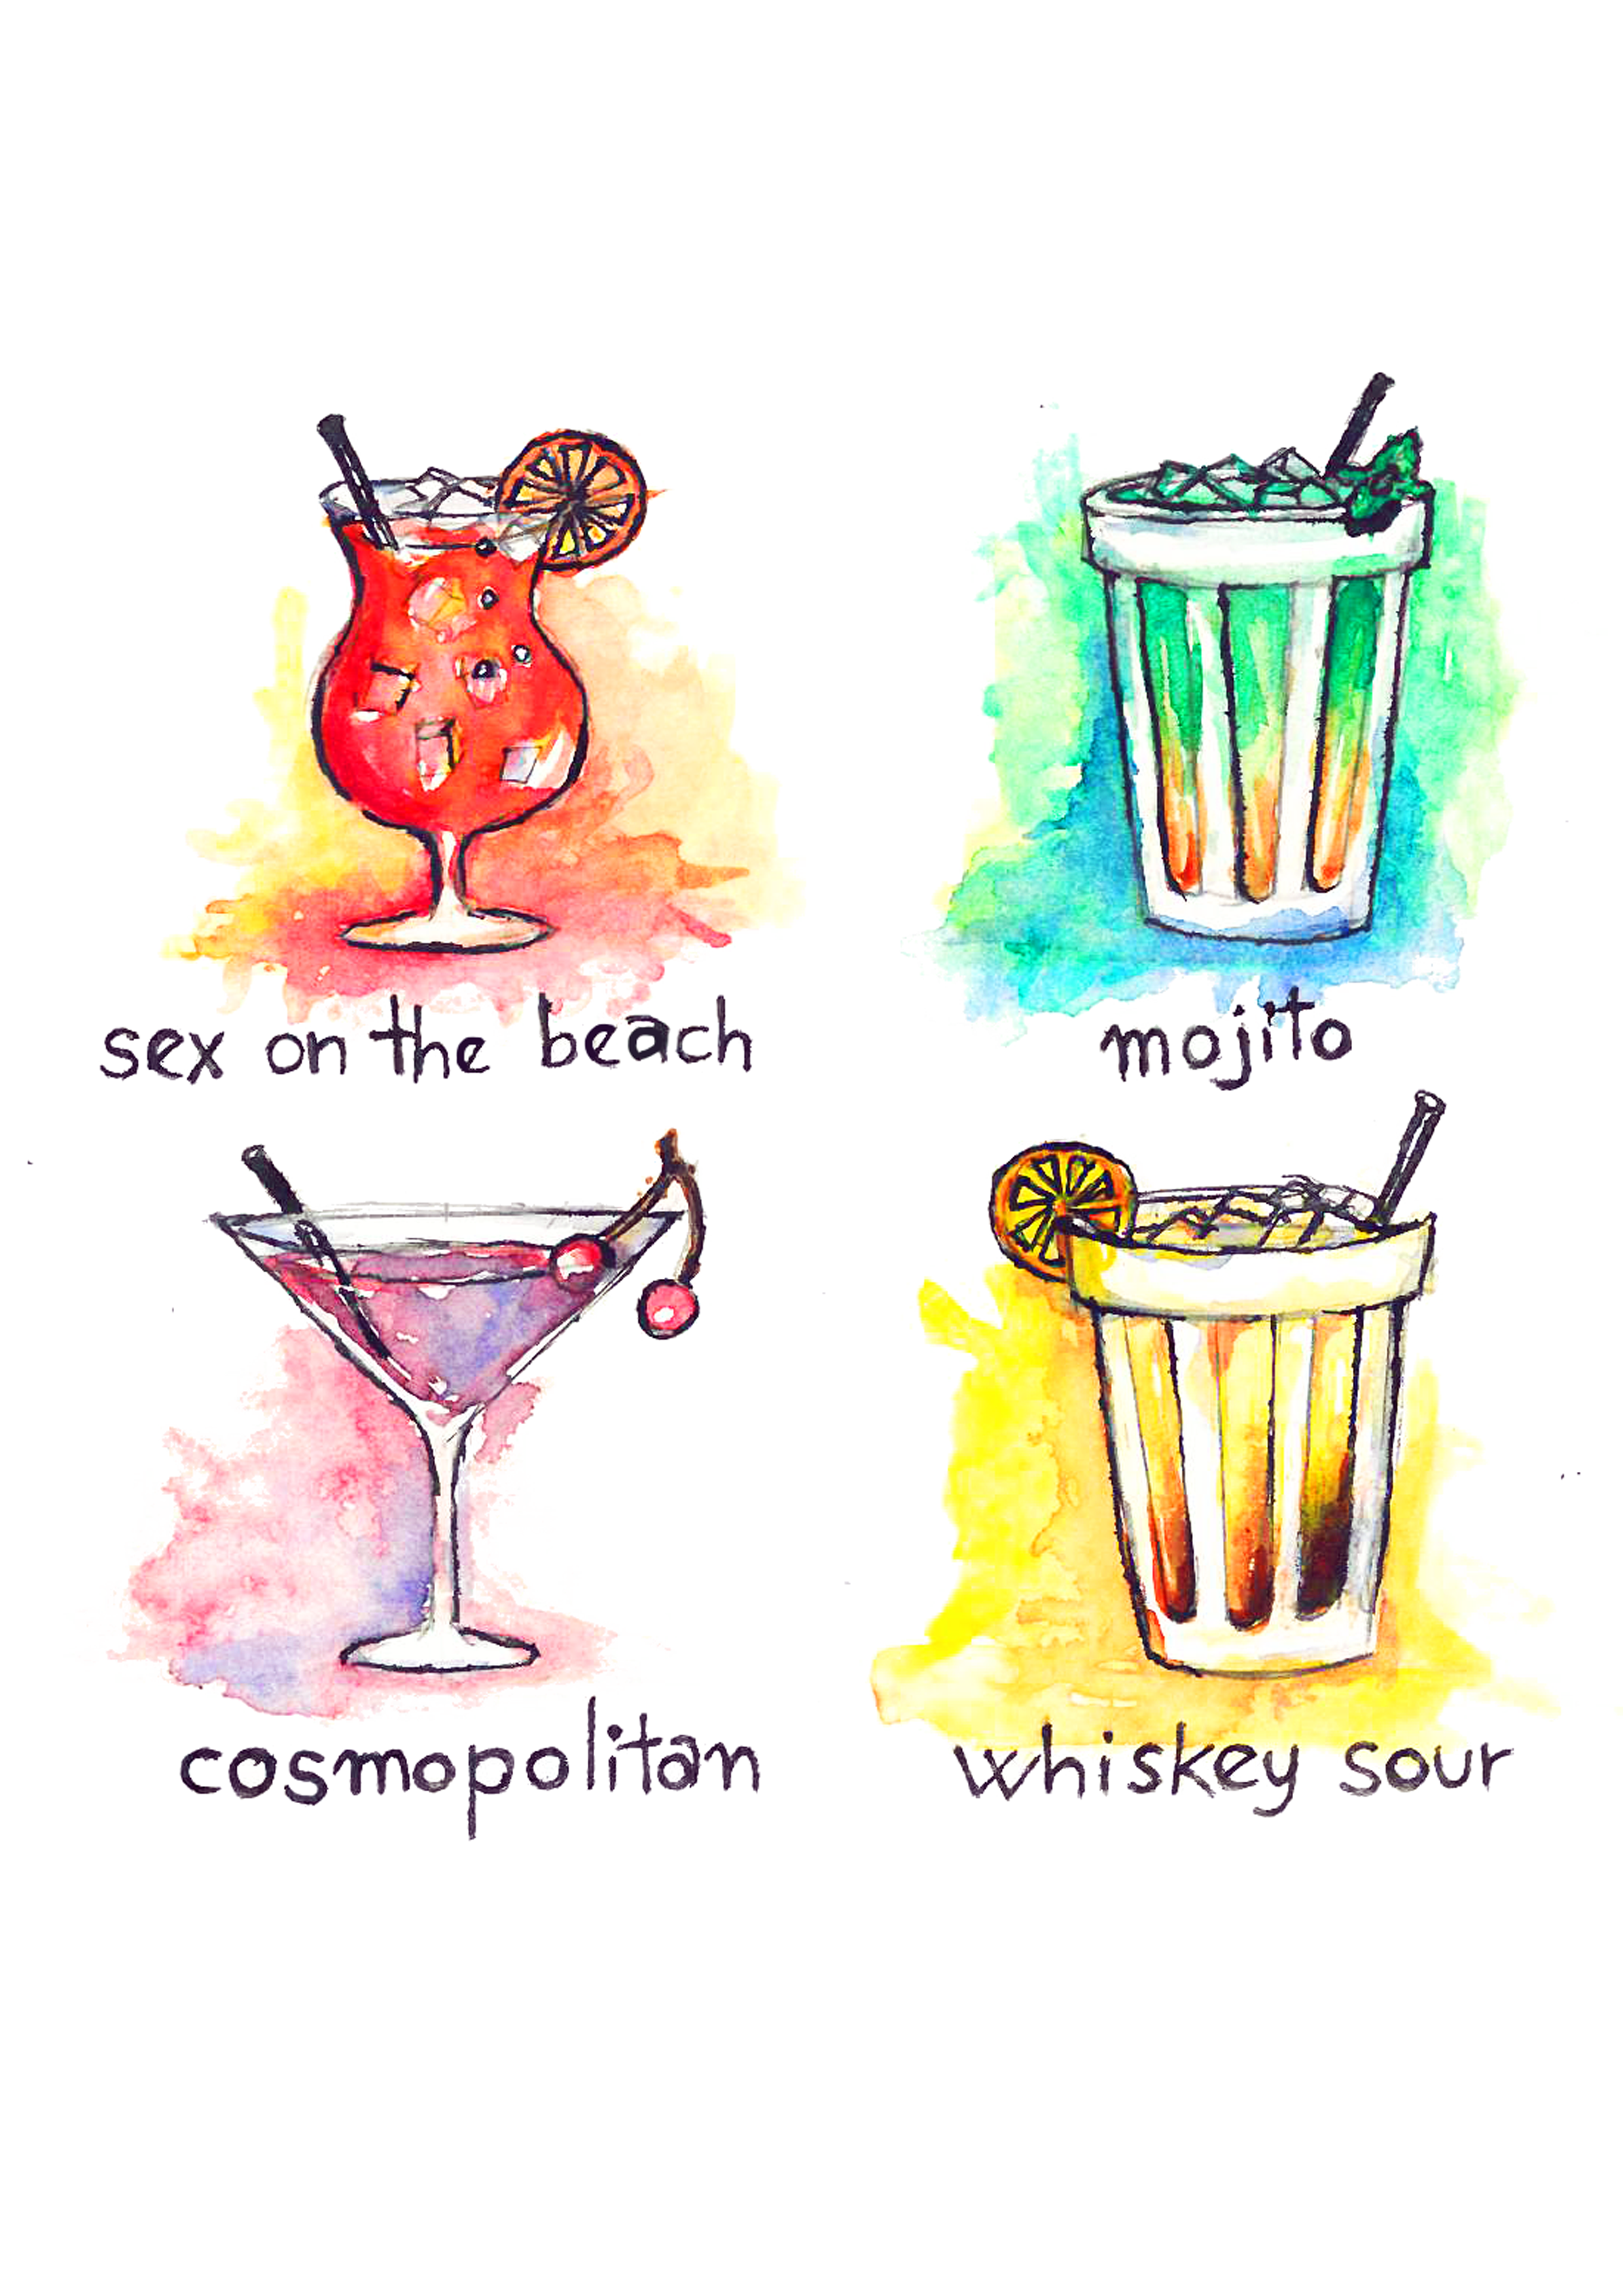 sex on the beach
mojito
cosmopolitan
whiskey sour